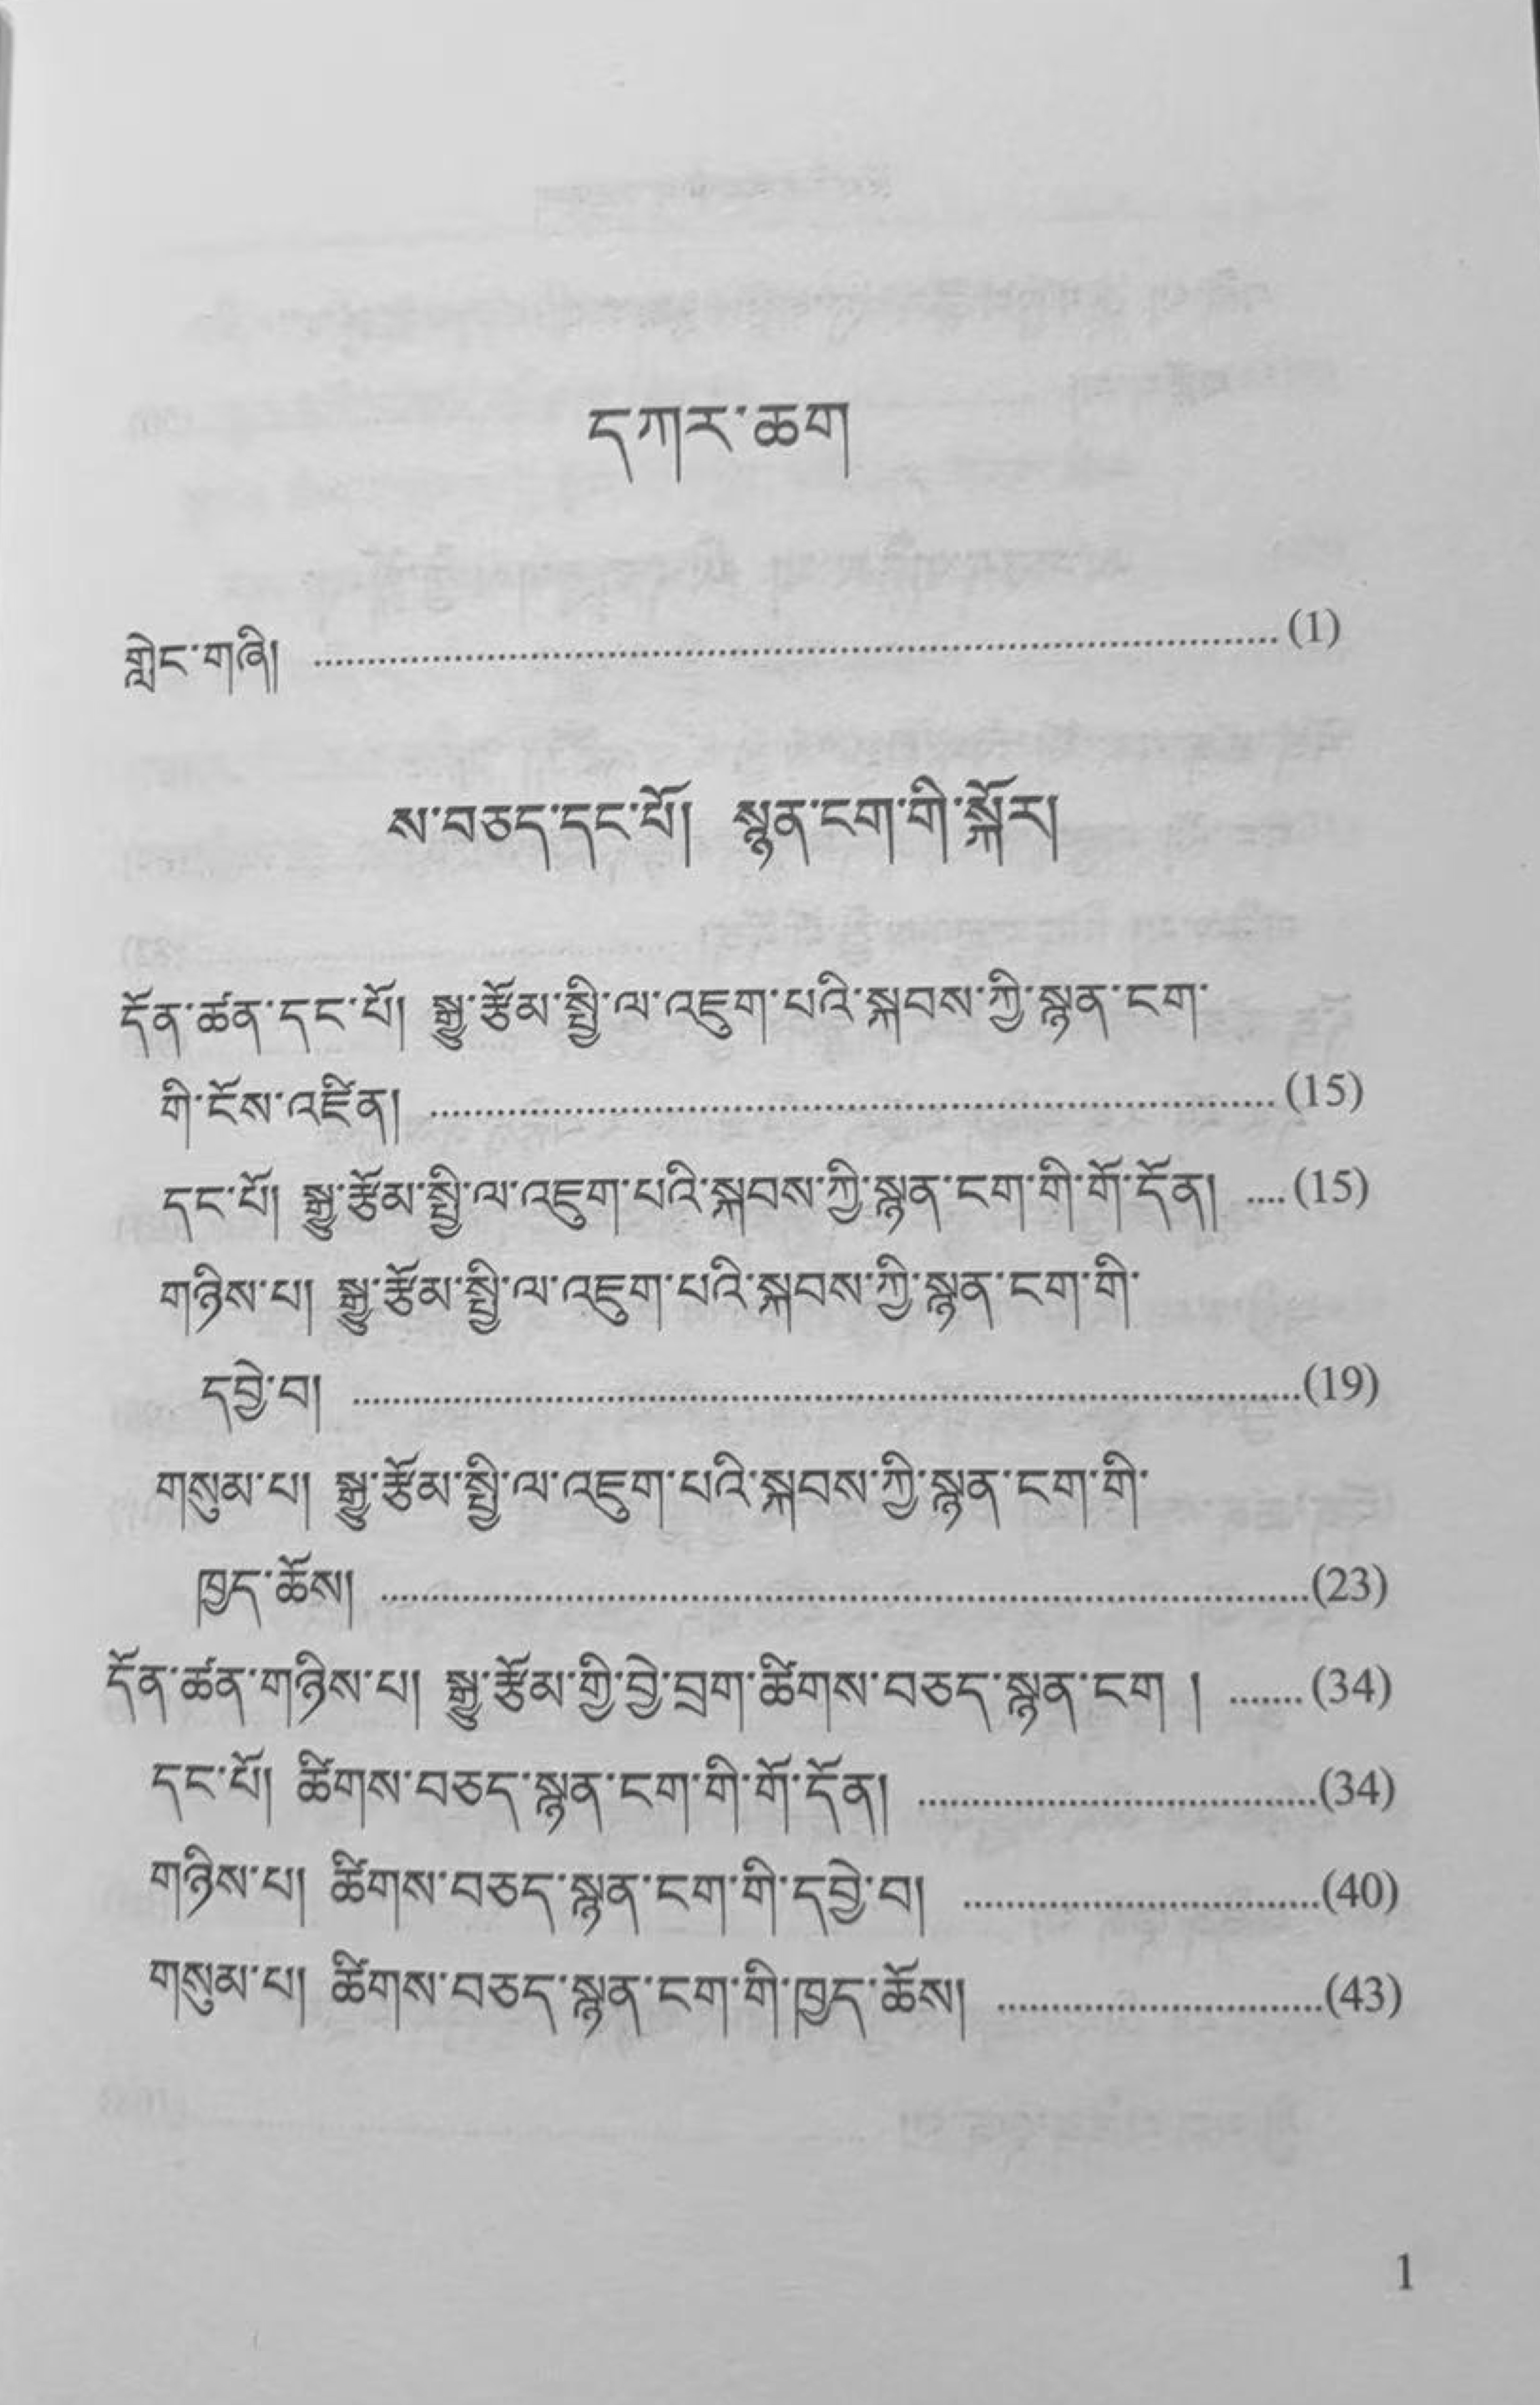 དཀར་ཆག
གླེང་གཞི། ........................................ (1)
ས་བཅད་དང་པོ། སྙན་ངག་གི་སྐོར།
དོན་ཚན་དང་པོ། སྒྱུ་རྩོམ་སྤྱི་ལ་འཇུག་པའི་སྐབས་ཀྱི་སྙན་ངག་
གི་ངོས་འཛིན། ........................................ (15)
དང་པོ། སྒྱུ་རྩོམ་སྤྱི་ལ་འཇུག་པའི་སྐབས་ཀྱི་སྙན་ངག་གི་གོ་དོན། .... (15)
གཉིས་པ། སྒྱུ་རྩོམ་སྤྱི་ལ་འཇུག་པའི་སྐབས་ཀྱི་སྙན་ངག་གི་
དབྱེ་བ། ........................................ (19)
གསུམ་པ། སྒྱུ་རྩོམ་སྤྱི་ལ་འཇུག་པའི་སྐབས་ཀྱི་སྙན་ངག་གི་
ཁྱད་ཆོས། ........................................ (23)
དོན་ཚན་གཉིས་པ། སྒྱུ་རྩོམ་གྱི་བྱེ་བྲག་ཚིགས་བཅད་སྙན་ངག ། ....... (34)
དང་པོ། ཚིགས་བཅད་སྙན་ངག་གི་གོ་དོན། .................... (34)
གཉིས་པ། ཚིགས་བཅད་སྙན་ངག་གི་དབྱེ་བ། .................... (40)
གསུམ་པ། ཚིགས་བཅད་སྙན་ངག་གི་ཁྱད་ཆོས། .................... (43)
1